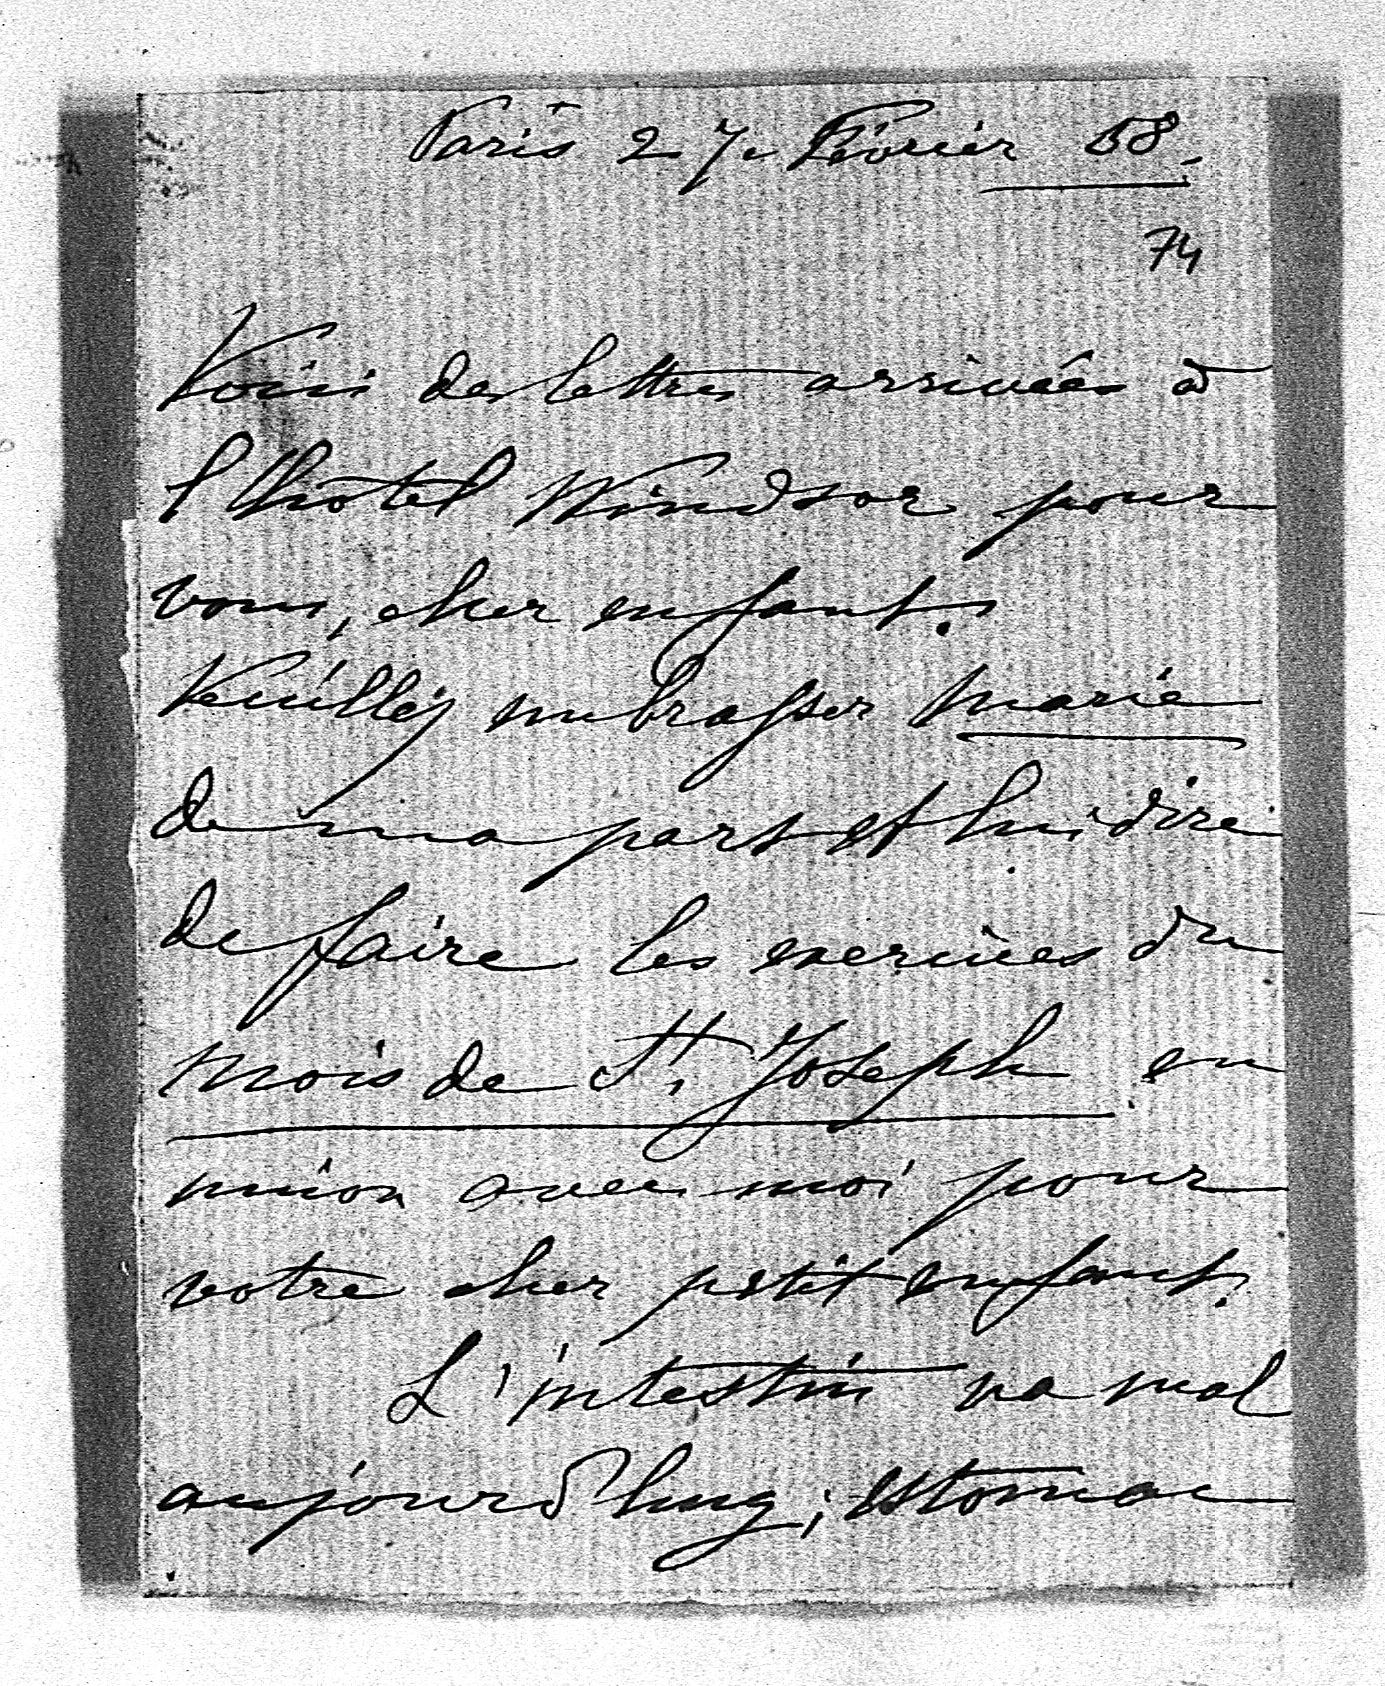 Paris 27 Février 58.
74
Voici des lettres arrivées à
l'hôtel Windsor pour
vous, cher enfant.
Veuilléz embrasser Marie
de ma part et lui dire
de faire les exercices du
mois de St. Joseph en
union avec moi pour
votre cher petit enfant.
L'intestin va mal
aujourd'huy ; estomac